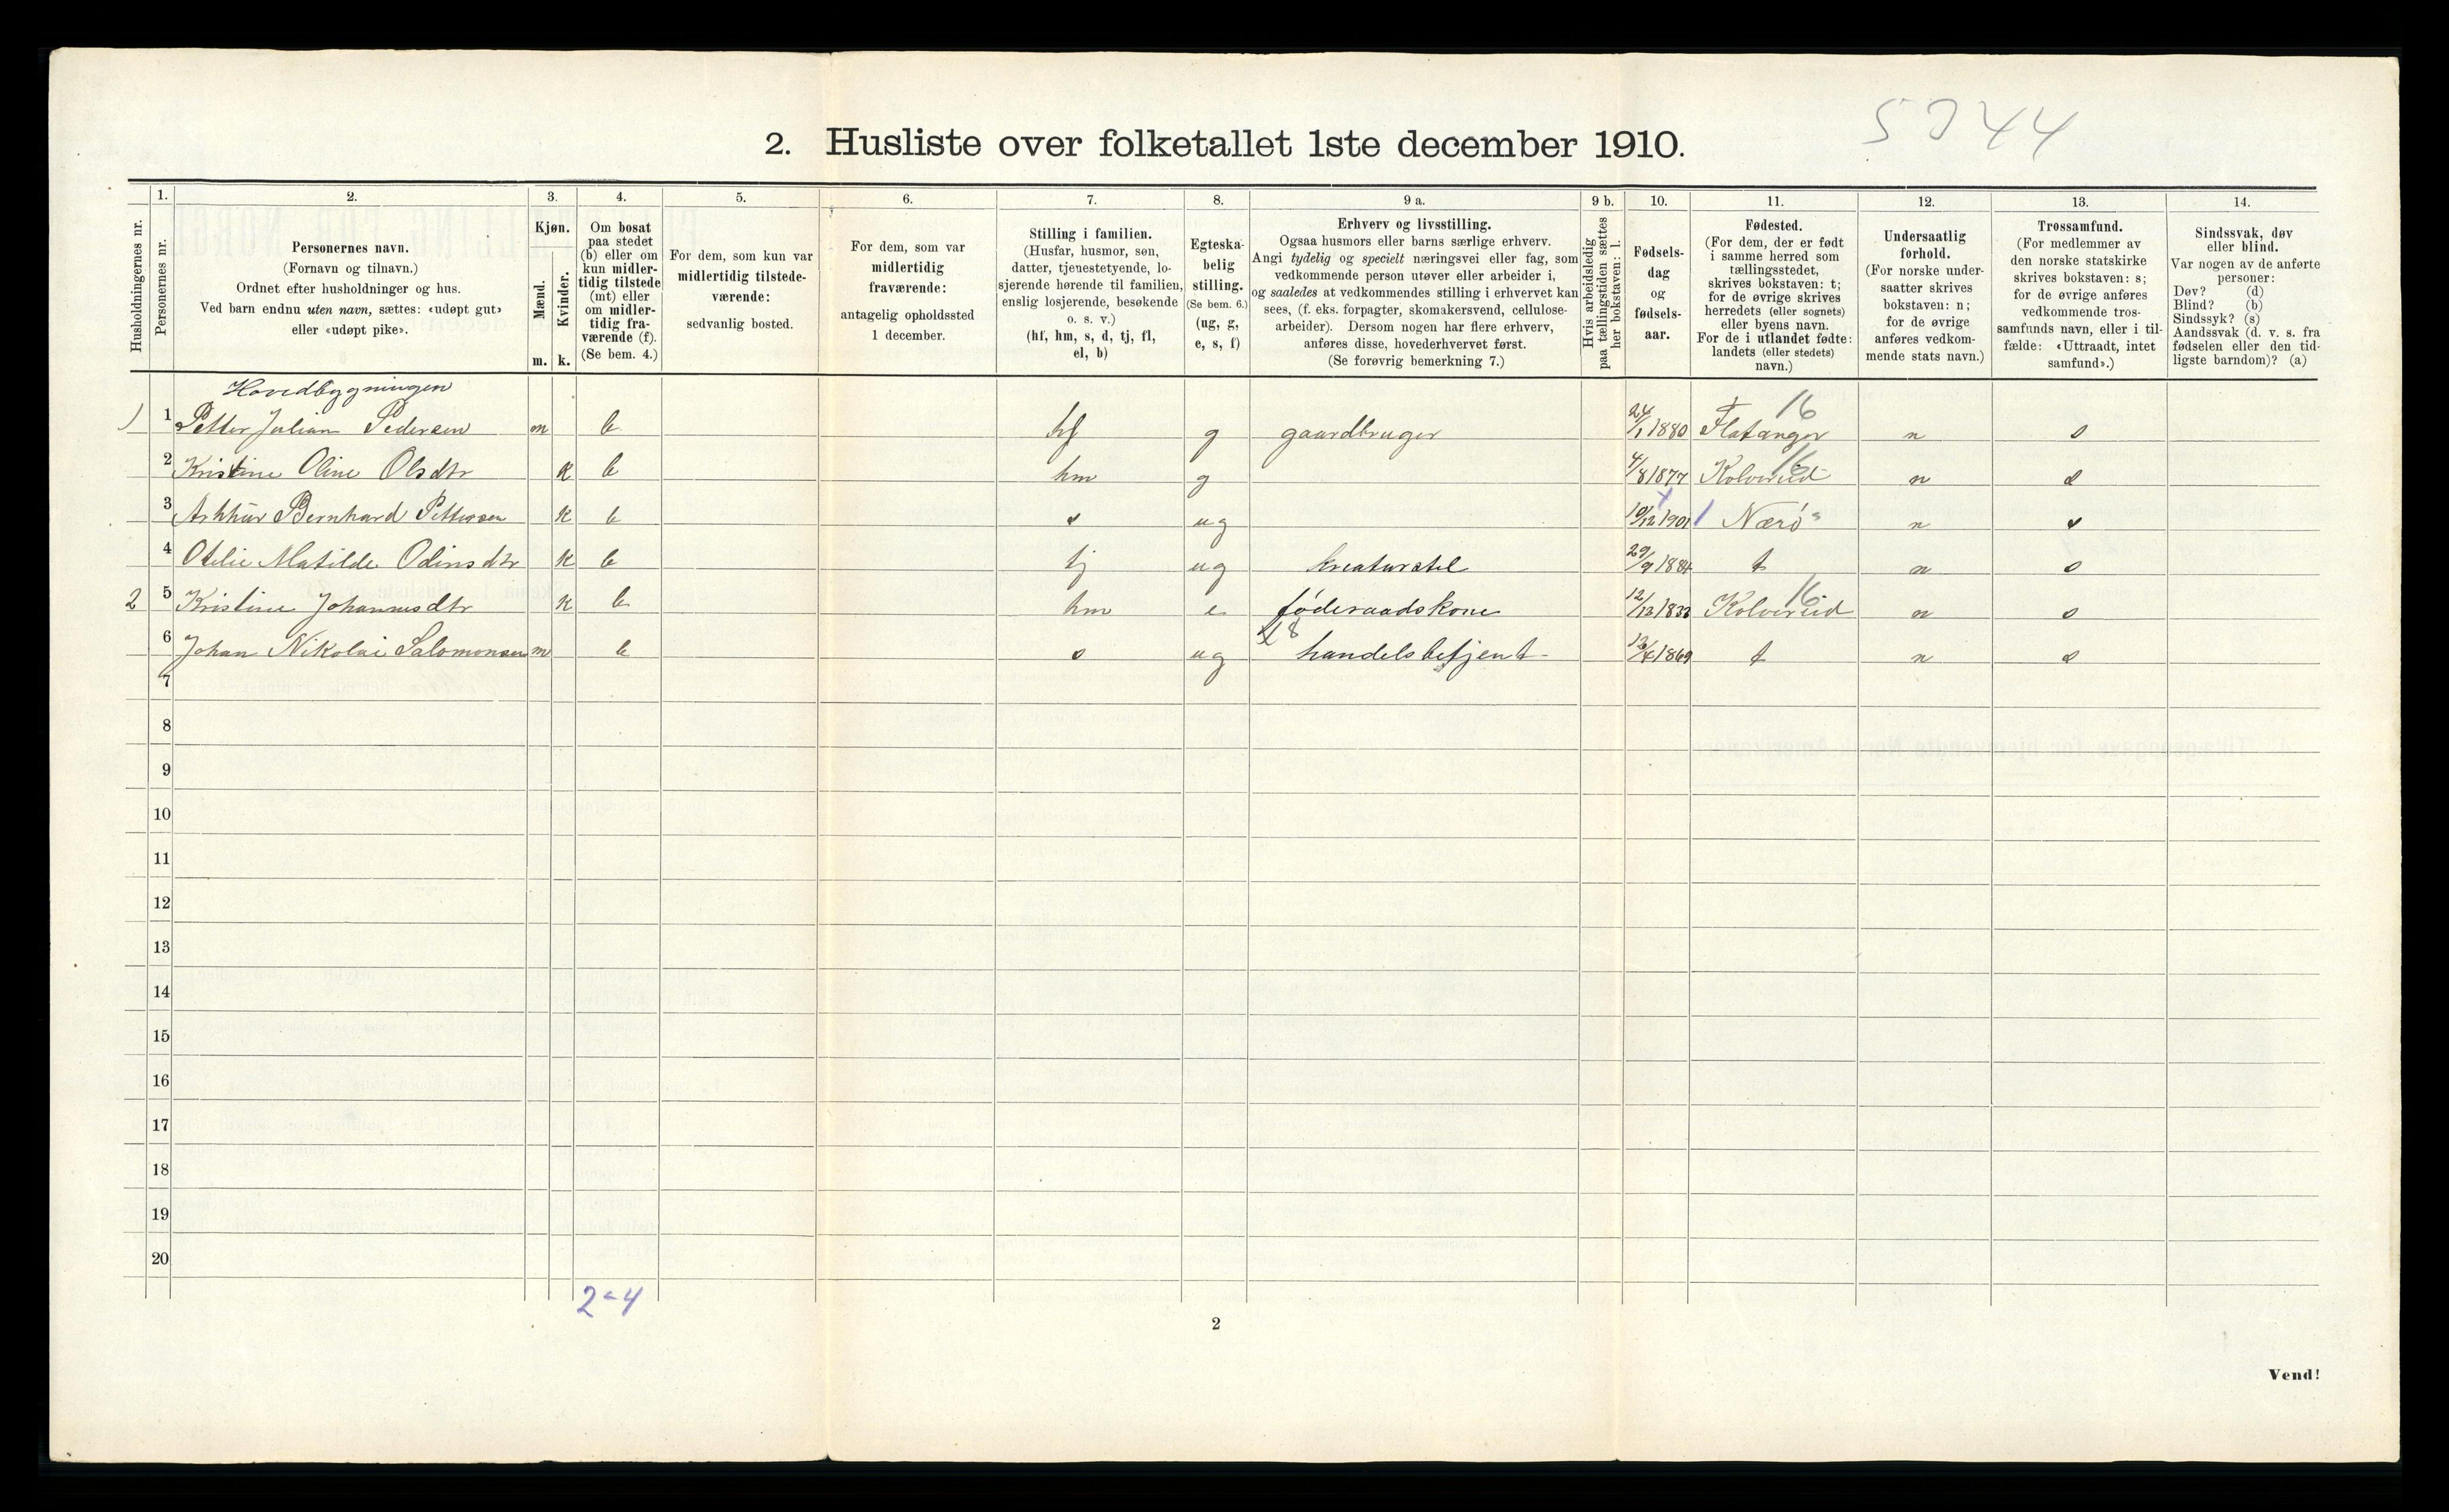 5044
2. Husliste over folketallet 1ste december 1910.
Husholdningernes nr.
1.
Personernes nr.
2.
Personernes navn.
(Fornavn og tilnavn.)
Ordnet efter husholdninger og hus.
Ved barn endnu uten navn, sættes: «udøpt gut»
eller «udøpt pike».
3.
Kjøn.
Mænd.
m.
Kvinder.
k.
4.
Om bosat
paa stedet
(b) eller om
kun midler-
tidig tilstede
(mt) eller
om midler-
tidig fra-
værende (f).
(Se bem. 4.)
5.
For dem, som kun var
midlertidig tilstede-
værende:
sedvanlig bosted.
6.
For dem, som var
midlertidig
fraværende:
antagelig opholdssted
1 december.
7.
Stilling i familien.
(Husfar, husmor, søn,
datter, tjenestetyende, lo-
sjerende hørende til familien,
enslig losjerende, besøkende
o. s. v.)
(hf, hm, s, d, tj, fl,
el, b)
8.
Egteska-
belig
stilling.
(Se bem. 6.)
(ug, g,
e, s, f)
9 a.
Erhverv og livsstilling.
Ogsaa husmors eller barns særlige erhverv.
Angi tydelig og specielt næringsvei eller fag, som
vedkommende person utøver eller arbeider i,
og saaledes at vedkommendes stilling i erhvervet kan
sees, (f. eks. forpagter, skomakersvend, cellulose-
arbeider). Dersom nogen har flere erhverv,
anføres disse, hovederhvervet først.
(Se forøvrig bemerkning 7.)
9 b.
Hvis arbeidsledig
paa tællingstiden sættes
her bokstaven: l.
10.
Fødsels-
dag
og
fødsels-
aar.
11.
Fødested.
(For dem, der er født
i samme herred som
tællingsstedet,
skrives bokstaven: t;
for de øvrige skrives
herredets (eller sognets)
eller byens navn.
For de i utlandet fødte:
landets (eller stedets)
navn.)
12.
Undersaatlig
forhold.
(For norske under-
saatter skrives
bokstaven: n;
for de øvrige
anføres vedkom-
mende stats navn.)
13.
Trossamfund.
(For medlemmer av
den norske statskirke
skrives bokstaven: s;
for de øvrige anføres
vedkommende tros-
samfunds navn, eller i til-
fælde: «Uttraadt, intet
samfund».)
14.
Sindssvak, døv
eller blind.
Var nogen av de anførte
personer:
Døv? (d)
Blind? (b)
Sindssyk? (s)
Aandssvak (d. v. s. fra
fødselen eller den tid-
ligste barndom)? (a)
Hovedbygningen
1 1 Petter Julian Pedersen m b hf g gaardbruger 24/1 1880 Flatanger 16 n s
2 Kristine Oline Olsdtr k b hm g 4/8 1877 Kolvereid 16 n s
3 Arthur Bernhard Pettersen k b s ug 10/12 1901 Nærø n s
4 Otelie Matilde Odinsdtr k b tj ug kreaturstel 29/9 1884 t n s
2 5 Kristine Johannesdtr k b hm e føderaadskone 1833 Kolvereid 16 n s
6 Johan Nikolai Salomonsen m b s ug handelsbetjent 13/4 1869 t n s
7
8
9
10
11
12
13
14
15
16
17
18
19
20
2-4
2
Vend!